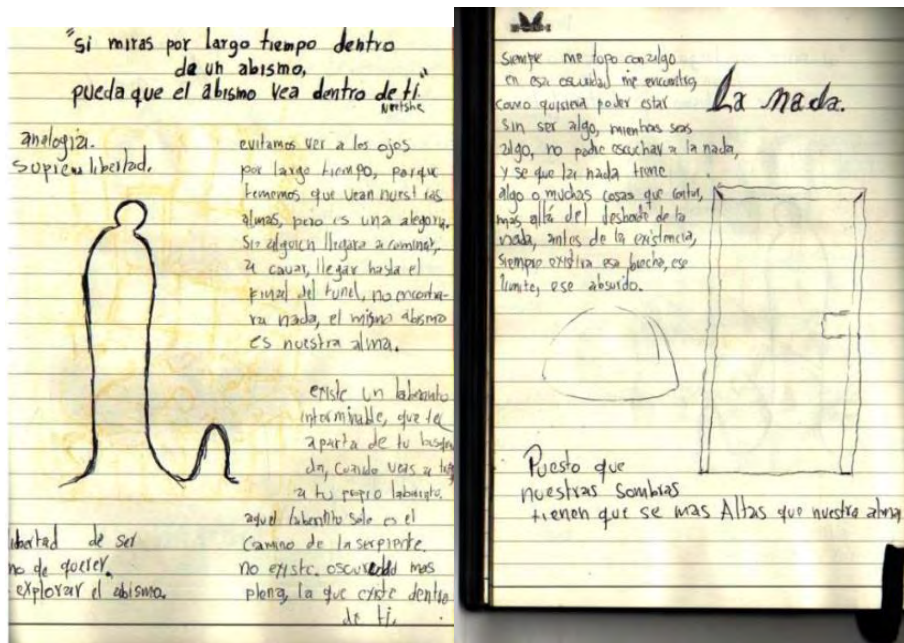 "si miras por largo tiempo dentro
de un abismo,
pueda que el abismo vea dentro de ti"
analogía.
suprema libertad.
evitamos ver a los ojos
por largo tiempo, porque
tememos que vean nuestras
almas, pero es una alegoria.
Si alguien llegara a caminar,
a cavar, llegar hasta el
final del tunel, no encontra-
ra nada, el mismo abismo
es nuestra alma.
existe un laberinto
interminable, que te
aparta de tu
cuando veas a
a tu propio laberinto.
aquel laberinto solo es el
Camino de la serpiente.
no existe. oscuridad mas
plena, la que existe dentro
de ti.
libertad de ser
no de querer.
explorar el abismo.
La nada.
Siempre me topo con algo
en esa oscuridad me encuentro,
como quisiera poder estar
sin ser algo, mientras seas
algo, no podre escuchar a la nada,
y se que la nada tiene
algo o muchas cosas que contar,
mas allá del desborde de la
nada, antes de la existencia,
siempre existira esa brecha, ese
limite, ese absurdo.
Puesto que
nuestras sombras
tienen que se mas Altas que nuestra alma